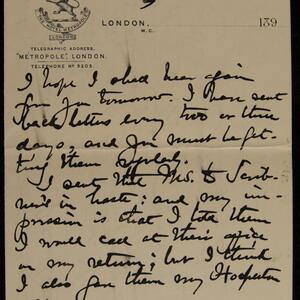 THE HOTEL METROPOLE
LONDON
LONDON,
W.C.
139
TELEGRAPHIC ADDRESS,
"METROPOLE", LONDON.
TELEPHONE Nº 5205.
I hope I shall hear again
from you tomorrow. I have sent
back letters every two or three
days, and you must be get-
ting them
I sent the MS. to Scrib-
ner's in haste; and my im-
pression is that I told them
I would call at their office
on my return; but I think
I also gave them my